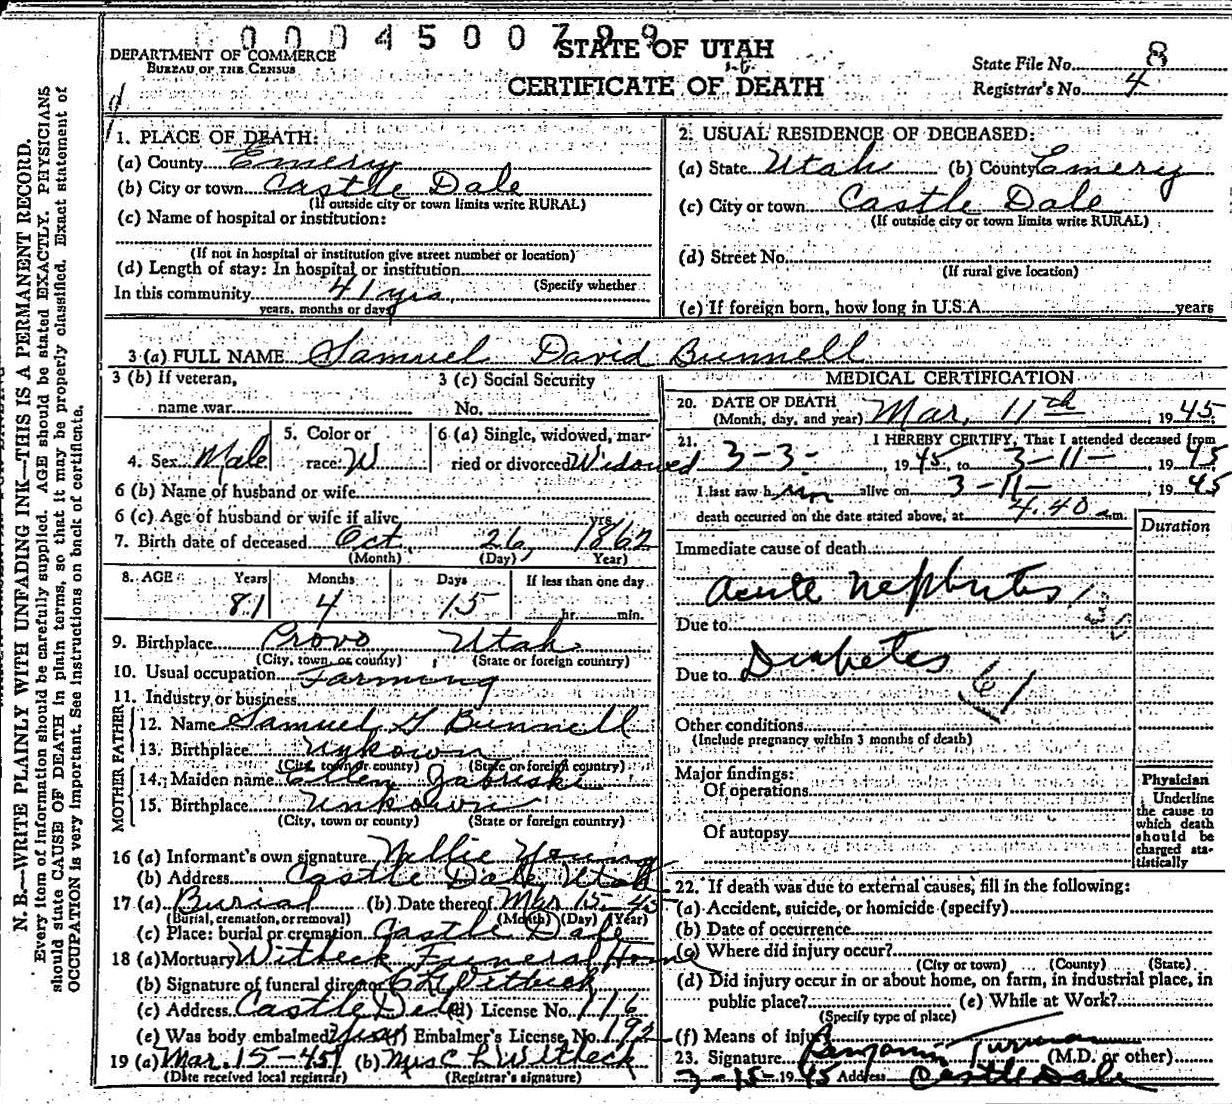 0 0 0 4 5 0 0 7 9 9
DEPARTMENT OF COMMERCE
BUREAU OF THE CENSUS
STATE OF UTAH
CERTIFICATE OF DEATH
State File No. 8
Registrar's No. 4
N. B.—WRITE PLAINLY WITH UNFADING INK—THIS IS A PERMANENT RECORD.
Every item of information should be carefully supplied. AGE should be stated EXACTLY. PHYSICIANS
should state CAUSE OF DEATH in plain terms, so that it may be properly classified. Exact statement of
OCCUPATION is very important. See instructions on back of certificate.
1. PLACE OF DEATH:
(a) County Emery
(b) City or town Castle Dale
(If outside city or town limits write RURAL)
(c) Name of hospital or institution:
(If not in hospital or institution give street number or location)
(d) Length of stay: In hospital or institution
(Specify whether
In this community 41 yrs.
years, months or days)
2. USUAL RESIDENCE OF DECEASED:
(a) State Utah (b) County Emery
(c) City or town Castle Dale
(If outside city or town limits write RURAL)
(d) Street No.
(If rural give location)
(e) If foreign born, how long in U.S.A. years
3 (a) FULL NAME Samuel David Bunnell
3 (b) If veteran,
name war
3 (c) Social Security
No.
4. Sex Male
5. Color or
race W
6 (a) Single, widowed, mar-
ried or divorced Widowed
6 (b) Name of husband or wife
6 (c) Age of husband or wife if alive yrs.
7. Birth date of deceased Oct. 26, 1862
(Month) (Day) (Year)
8. AGE Years Months Days If less than one day
81 4 15 hr. min.
9. Birthplace Provo, Utah
(City, town, or county) (State or foreign country)
10. Usual occupation Farming
11. Industry or business
FATHER
12. Name Samuel G Bunnell
13. Birthplace Unkown
(City, town or county) (State or foreign country)
MOTHER
14. Maiden name Ellen Zabriski
15. Birthplace Unkown
(City, town or county) (State or foreign country)
16 (a) Informant's own signature Nellie Young
(b) Address Castle Dale, Utah
17 (a) Burial (b) Date thereof Mar 15-45
(Burial, cremation, or removal) (Month) (Day) (Year)
(c) Place: burial or cremation Castle Dale
18 (a) Mortuary Witbeck Funeral Home
(b) Signature of funeral director C L Witbeck
(c) Address Castle Dale (d) License No. 116
(e) Was body embalmed? Yes (f) Embalmer's License No. 192
19 (a) Mar. 15-45 (b) Mrs C L Witbeck
(Date received local registrar) (Registrar's signature)
MEDICAL CERTIFICATION
20. DATE OF DEATH
(Month, day, and year) Mar. 11th 1945
21. I HEREBY CERTIFY, That I attended deceased from
3-3- , 1945, to 3-11- , 1945
I last saw him alive on 3-11- , 1945
death occurred on the date stated above, at 4:40 a.m.
Duration
Immediate cause of death
Acute Nephrites
Due to
Diabetes
Due to
61
Other conditions
(Include pregnancy within 3 months of death)
Major findings:
Of operations
Of autopsy
Physician
Underline
the cause to
which death
should be
charged sta-
tistically
22. If death was due to external causes, fill in the following:
(a) Accident, suicide, or homicide (specify)
(b) Date of occurrence
(c) Where did injury occur?
(City or town) (County) (State)
(d) Did injury occur in or about home, on farm, in industrial place, in
public place? (e) While at Work?
(Specify type of place)
(f) Means of injury
23. Signature Benjamin Turman (M.D. or other)
3-15-1945 Address Castle Dale